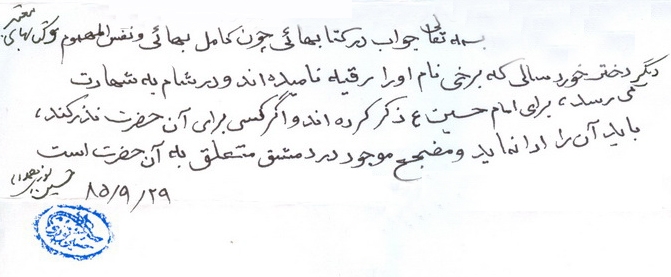 بسمه تعالی جواب در کتابهائی چون کامل بهائی و نفس المهموم و کتابهای معتبر
دیگر دختر خوردسالی که برخی نام او را رقیه نامیده اند و در شام به شهادت
می رسد، برای امام حسین ع ذکر کرده اند و اگر کسی برای آن حضرت نذر کند،
باید آن را ادا نماید و مضجع موجود در دمشق متعلق به آن حضرت است
حسین نوری همدانی
۸۵/۹/۲۹